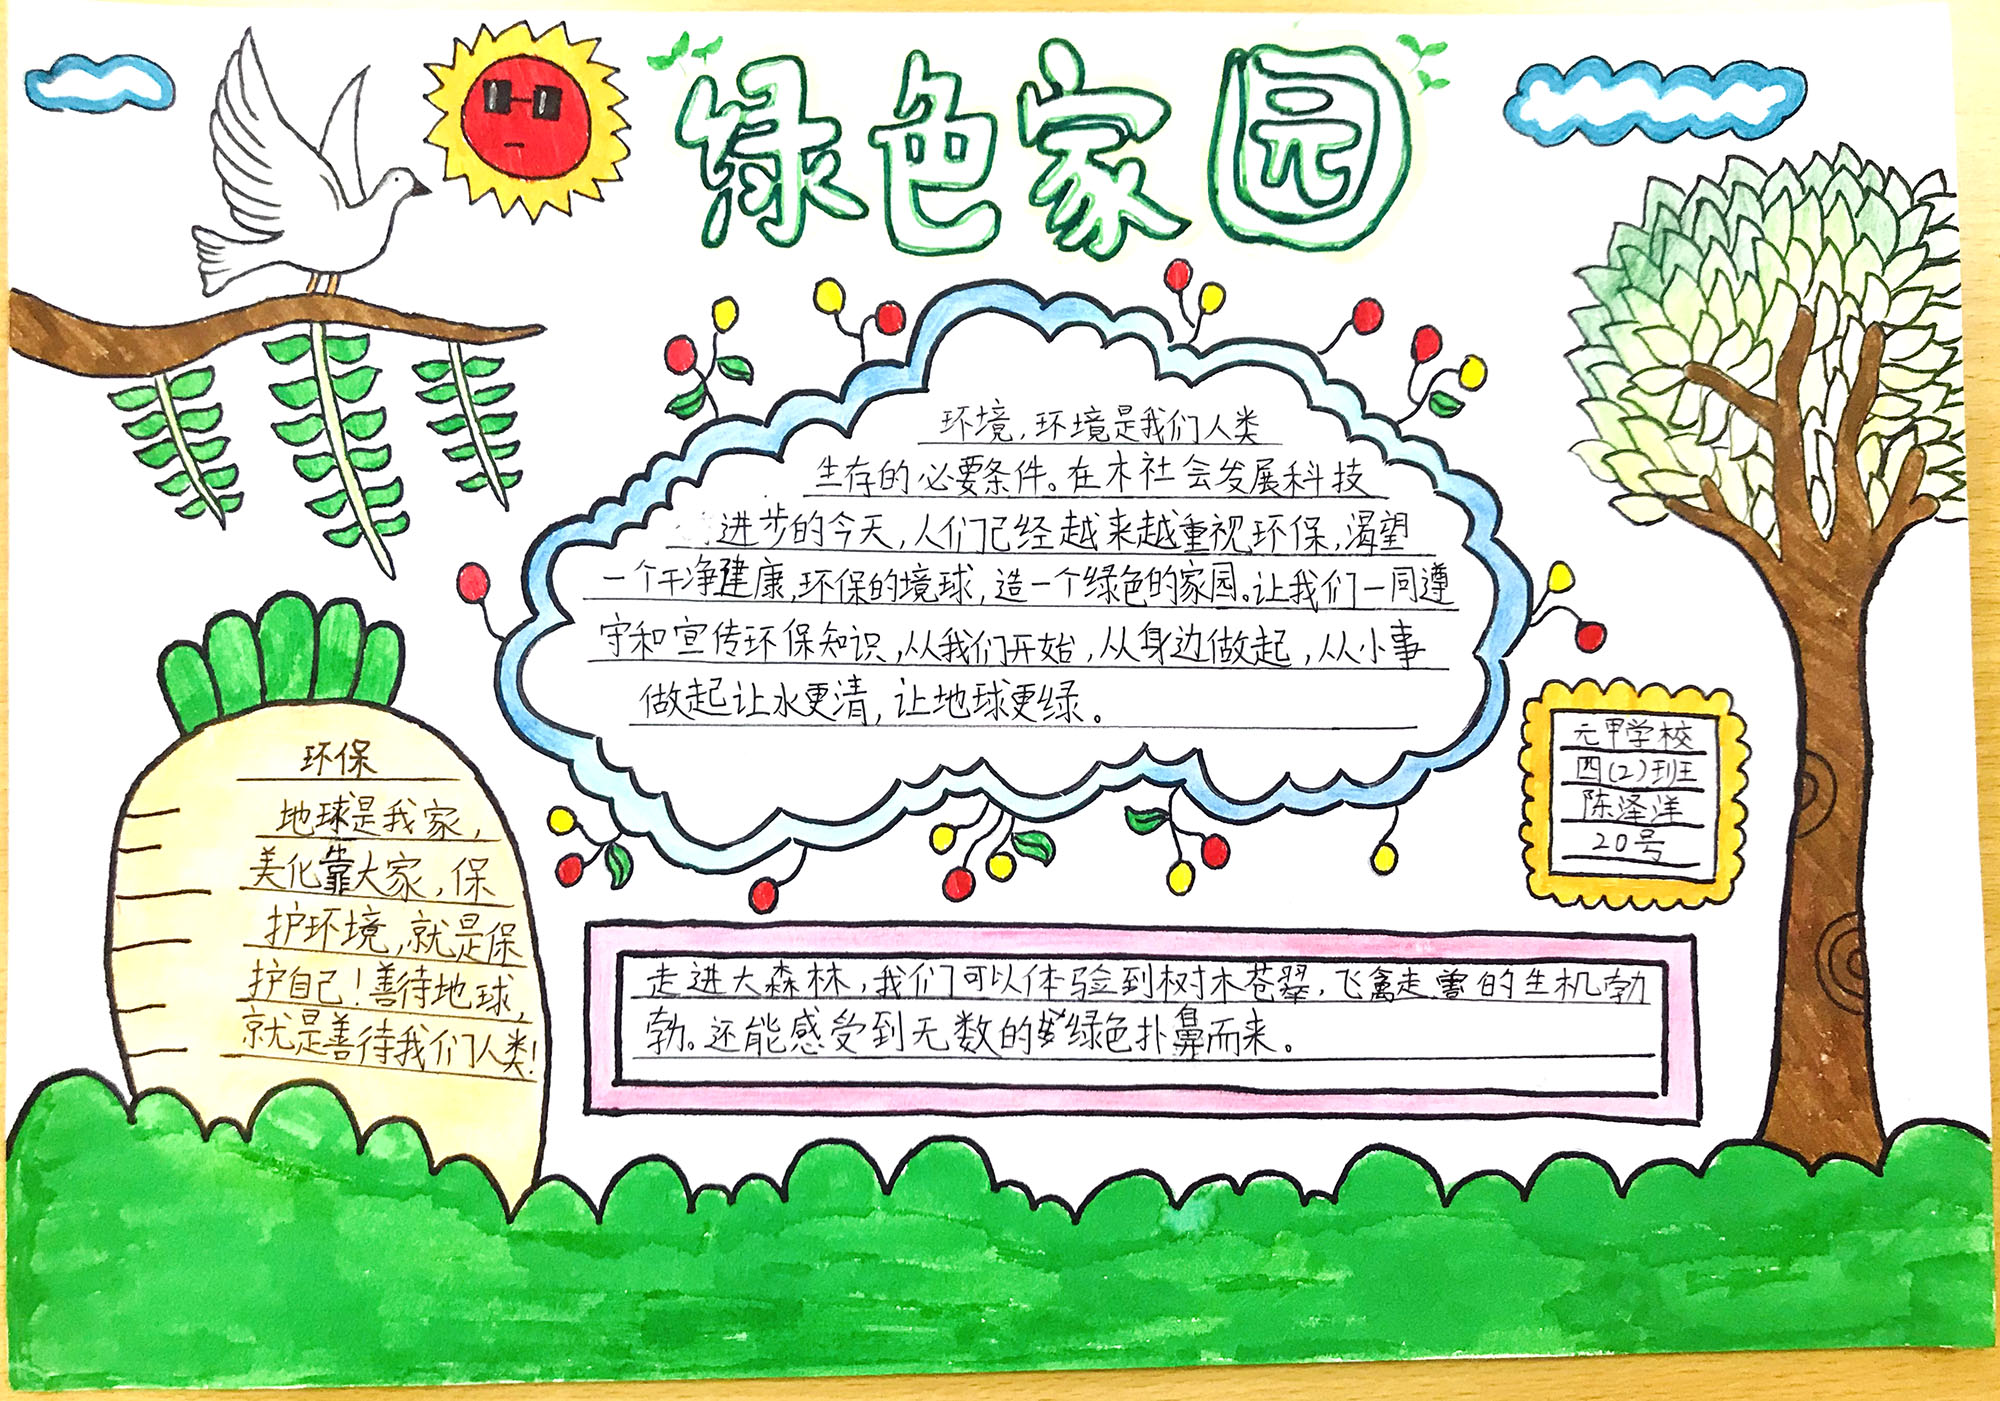 绿色家园
环境,环境是我们人类
生存的必要条件。在木社会发展科技
进步的今天,人们已经越来越重视环保,渴望
一个干净建康,环保的境球,造一个绿色的家园。让我们一同遵
守和宣传环保知识,从我们开始,从身边做起,从小事
做起让水更清,让地球更绿。
环保
地球是我家,
美化靠大家,保
护环境,就是保
护自己!善待地球,
就是善待我们人类!
元甲学校
四(2)班
陈泽洋
20号
走进大森林,我们可以体验到树木苍翠,飞禽走兽的生机勃
勃。还能感受到无数的绿色扑鼻而来。